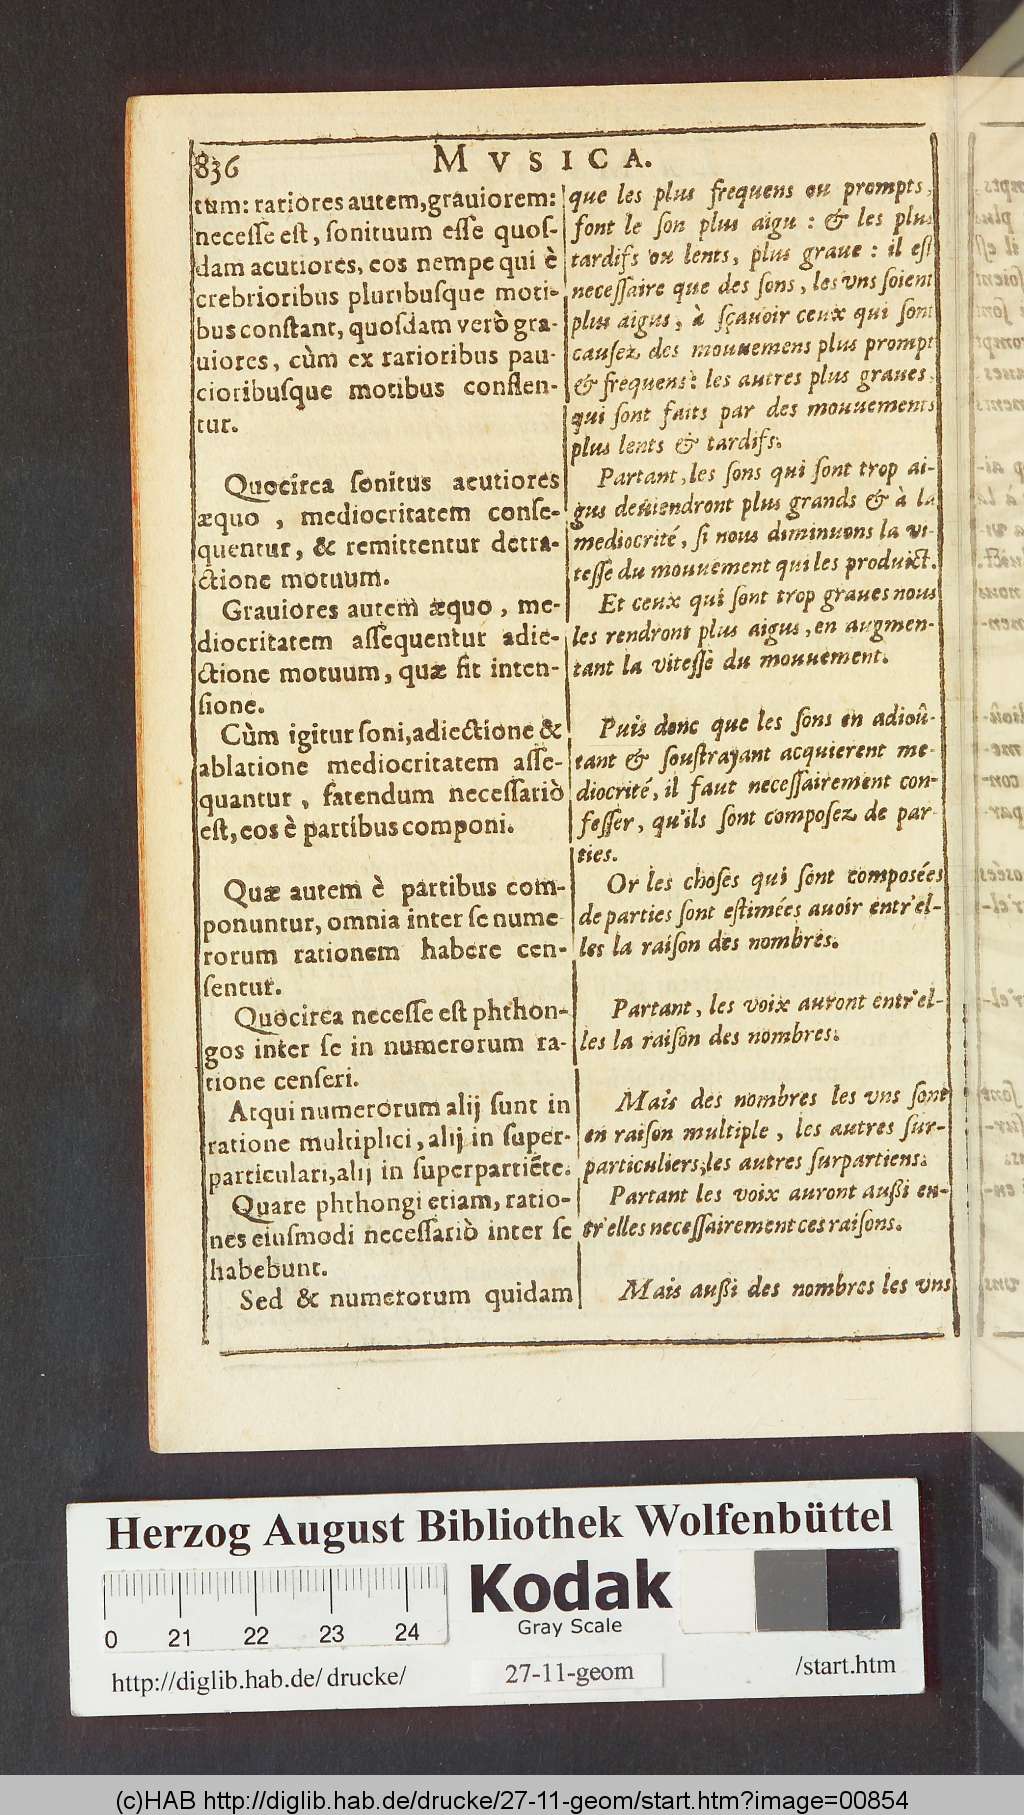 836
MVSICA.
tum: rariores autem, grauiorem:
necesse est, sonituum esse quos-
dam acutiores, eos nempe qui è
crebrioribus pluribusque moti-
bus constant, quosdam verò gra-
uiores, cùm ex rarioribus pau-
cioribusque motibus consten-
tur.
Quocirca sonitus acutiores
æquo, mediocritatem conse-
quentur, & remittentur detra-
ctione motuum.
Grauiores autem æquo, me-
diocritatem assequentur adie-
ctione motuum, quæ fit inten-
sione.
Cùm igitur soni, adiectione &
ablatione mediocritatem asse-
quantur, fatendum necessariò
est, eos è partibus componi.
Quæ autem è partibus com-
ponuntur, omnia inter se nume
rorum rationem habere cen-
sentur.
Quocirca necesse est phthon-
gos inter se in numerorum ra-
tione censeri.
Atqui numerorum alij sunt in
ratione multiplici, alij in super-
particulari, alij in superpartiēte.
Quare phthongi etiam, ratio-
nes eiusmodi necessariò inter se
habebunt.
Sed & numerorum quidam
que les plus frequens ou prompts,
font le son plus aigu : & les plus
tardifs ou lents, plus graue : il est
necessaire que des sons, les vns soient
plus aigus, à sçauoir ceux qui sont
causez des mouuemens plus prompt
& frequens: les autres plus graues,
qui sont faits par des mouuements
plus lents & tardifs.
Partant, les sons qui sont trop ai-
gus deuiendront plus grands & à la
mediocrité, si nous diminuons la vi-
tesse du mouuement qui les produict.
Et ceux qui sont trop graues nous
les rendront plus aigus, en augmen-
tant la vitesse du mouuement.
Puis donc que les sons en adioû-
tant & soustrayant acquierent me-
diocrité, il faut necessairement con-
fesser, qu'ils sont composez de par-
ties.
Or les choses qui sont composées
de parties sont estimées auoir entr'el-
les la raison des nombres.
Partant, les voix auront entr'el-
les la raison des nombres.
Mais des nombres les vns sont
en raison multiple, les autres sur-
particuliers, les autres surpartiens.
Partant les voix auront aussi en-
tr'elles necessairement ces raisons.
Mais aussi des nombres les vns
Herzog August Bibliothek Wolfenbüttel
Kodak
Gray Scale
0 21 22 23 24
http://diglib.hab.de/drucke/ 27-11-geom /start.htm
(c)HAB http://diglib.hab.de/drucke/27-11-geom/start.htm?image=00854